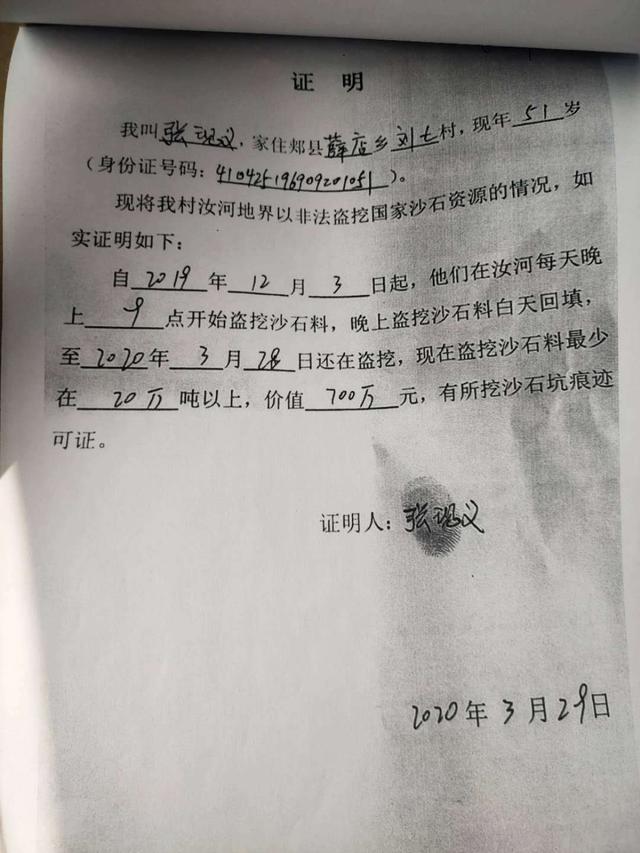 证 明
我叫张现义，家住郏县薛店乡刘七村，现年51岁
（身份证号码：410425196909201051）。
现将我村汝河地界以非法盗挖国家沙石资源的情况，如
实证明如下：
自2019年12月3日起，他们在汝河每天晚
上9点开始盗挖沙石料，晚上盗挖沙石料白天回填，
至2020年3月28日还在盗挖，现在盗挖沙石料最少
在20万吨以上，价值700万元，有所挖沙石坑痕迹
可证。
证明人：张现义
2020年3月29日